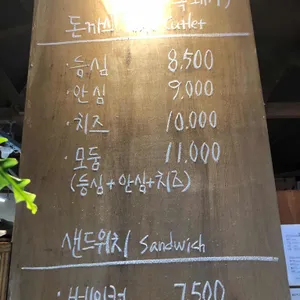 돈까스 Cutlet
·등심 8.500
·안심 9.000
·치즈 10.000
·모둠 11.000
(등심+안심+치즈)
샌드위치 Sandwich
7.500